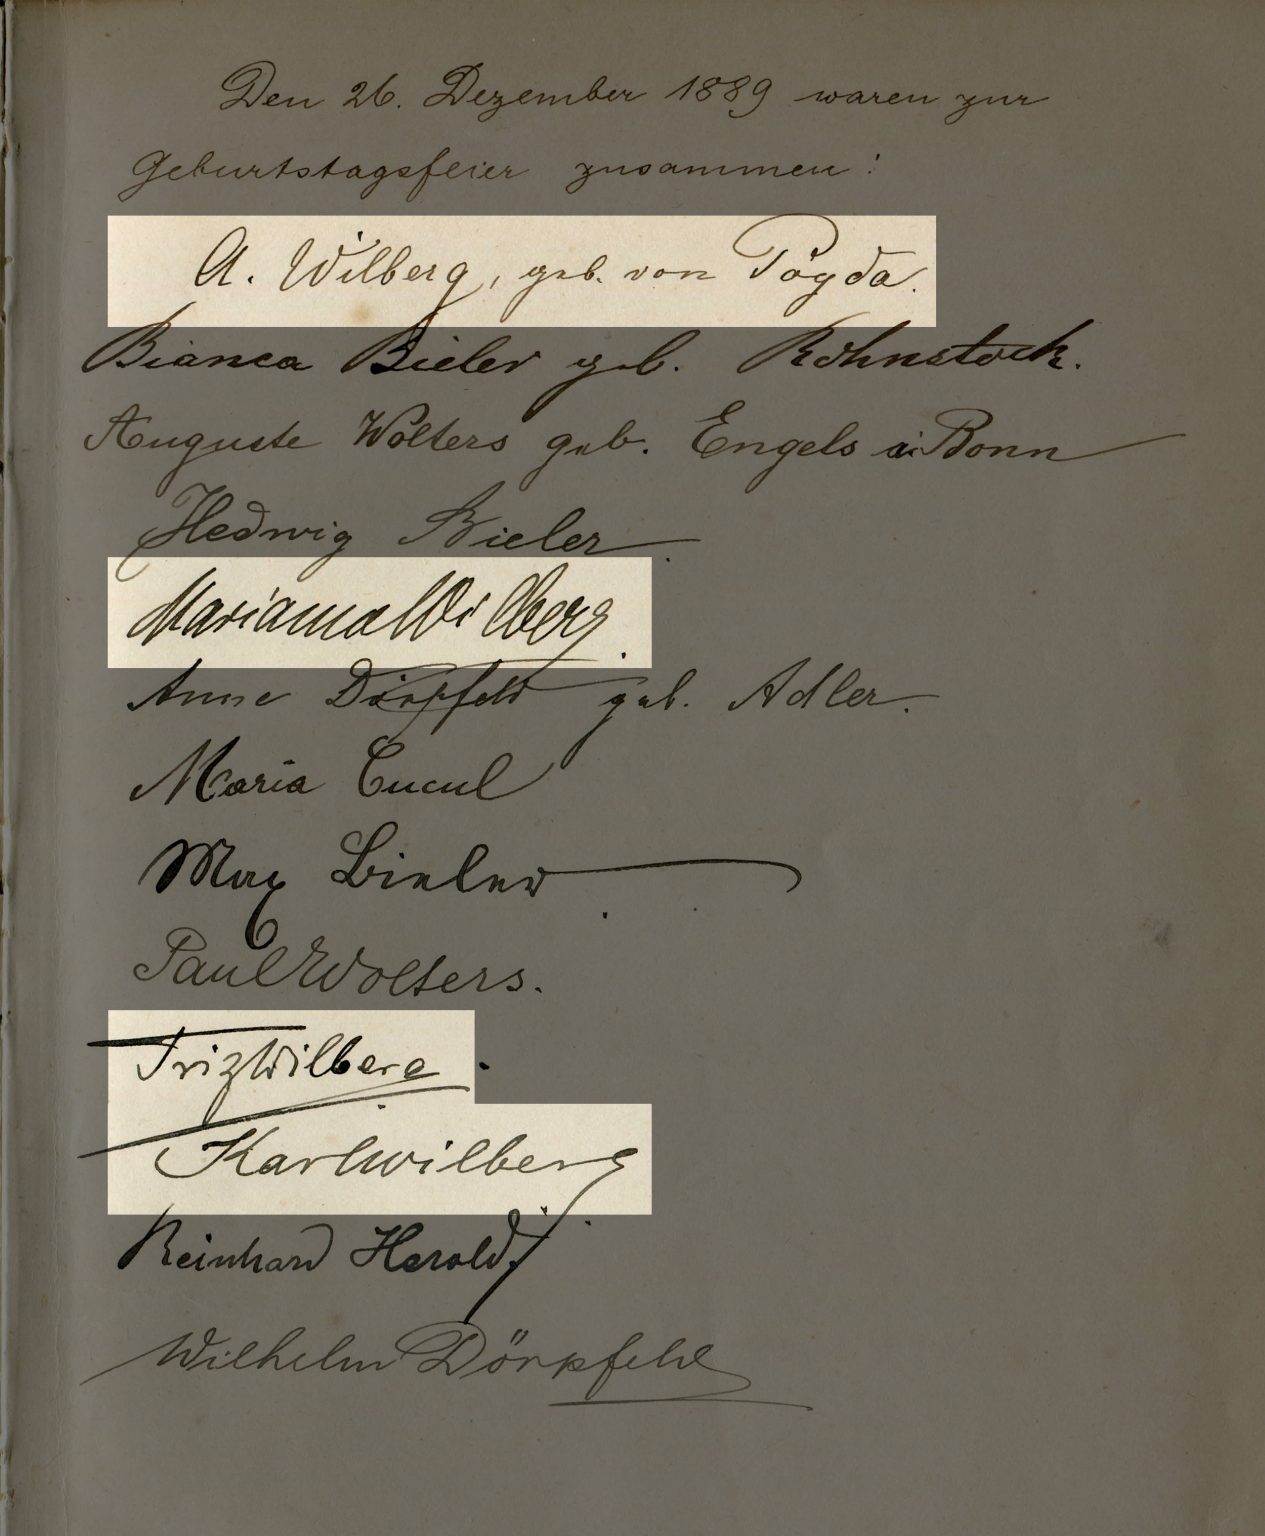 Den 26. Dezember 1889 waren zur
Geburtstagsfeier zusammen:
A. Wilberg, geb. von Pögda.
Bianca Bieler geb. Rohnstock.
Auguste Wolters geb. Engels a. Bonn
Hedwig Bieler
Marianna Wilberg.
Anne Dörpfeld geb. Adler.
Maria Cucul
Max Bieler
Paul Wolters.
Friz Wilberg.
Karl Wilberg
Reinhard Herold.
Wilhelm Dörpfeld